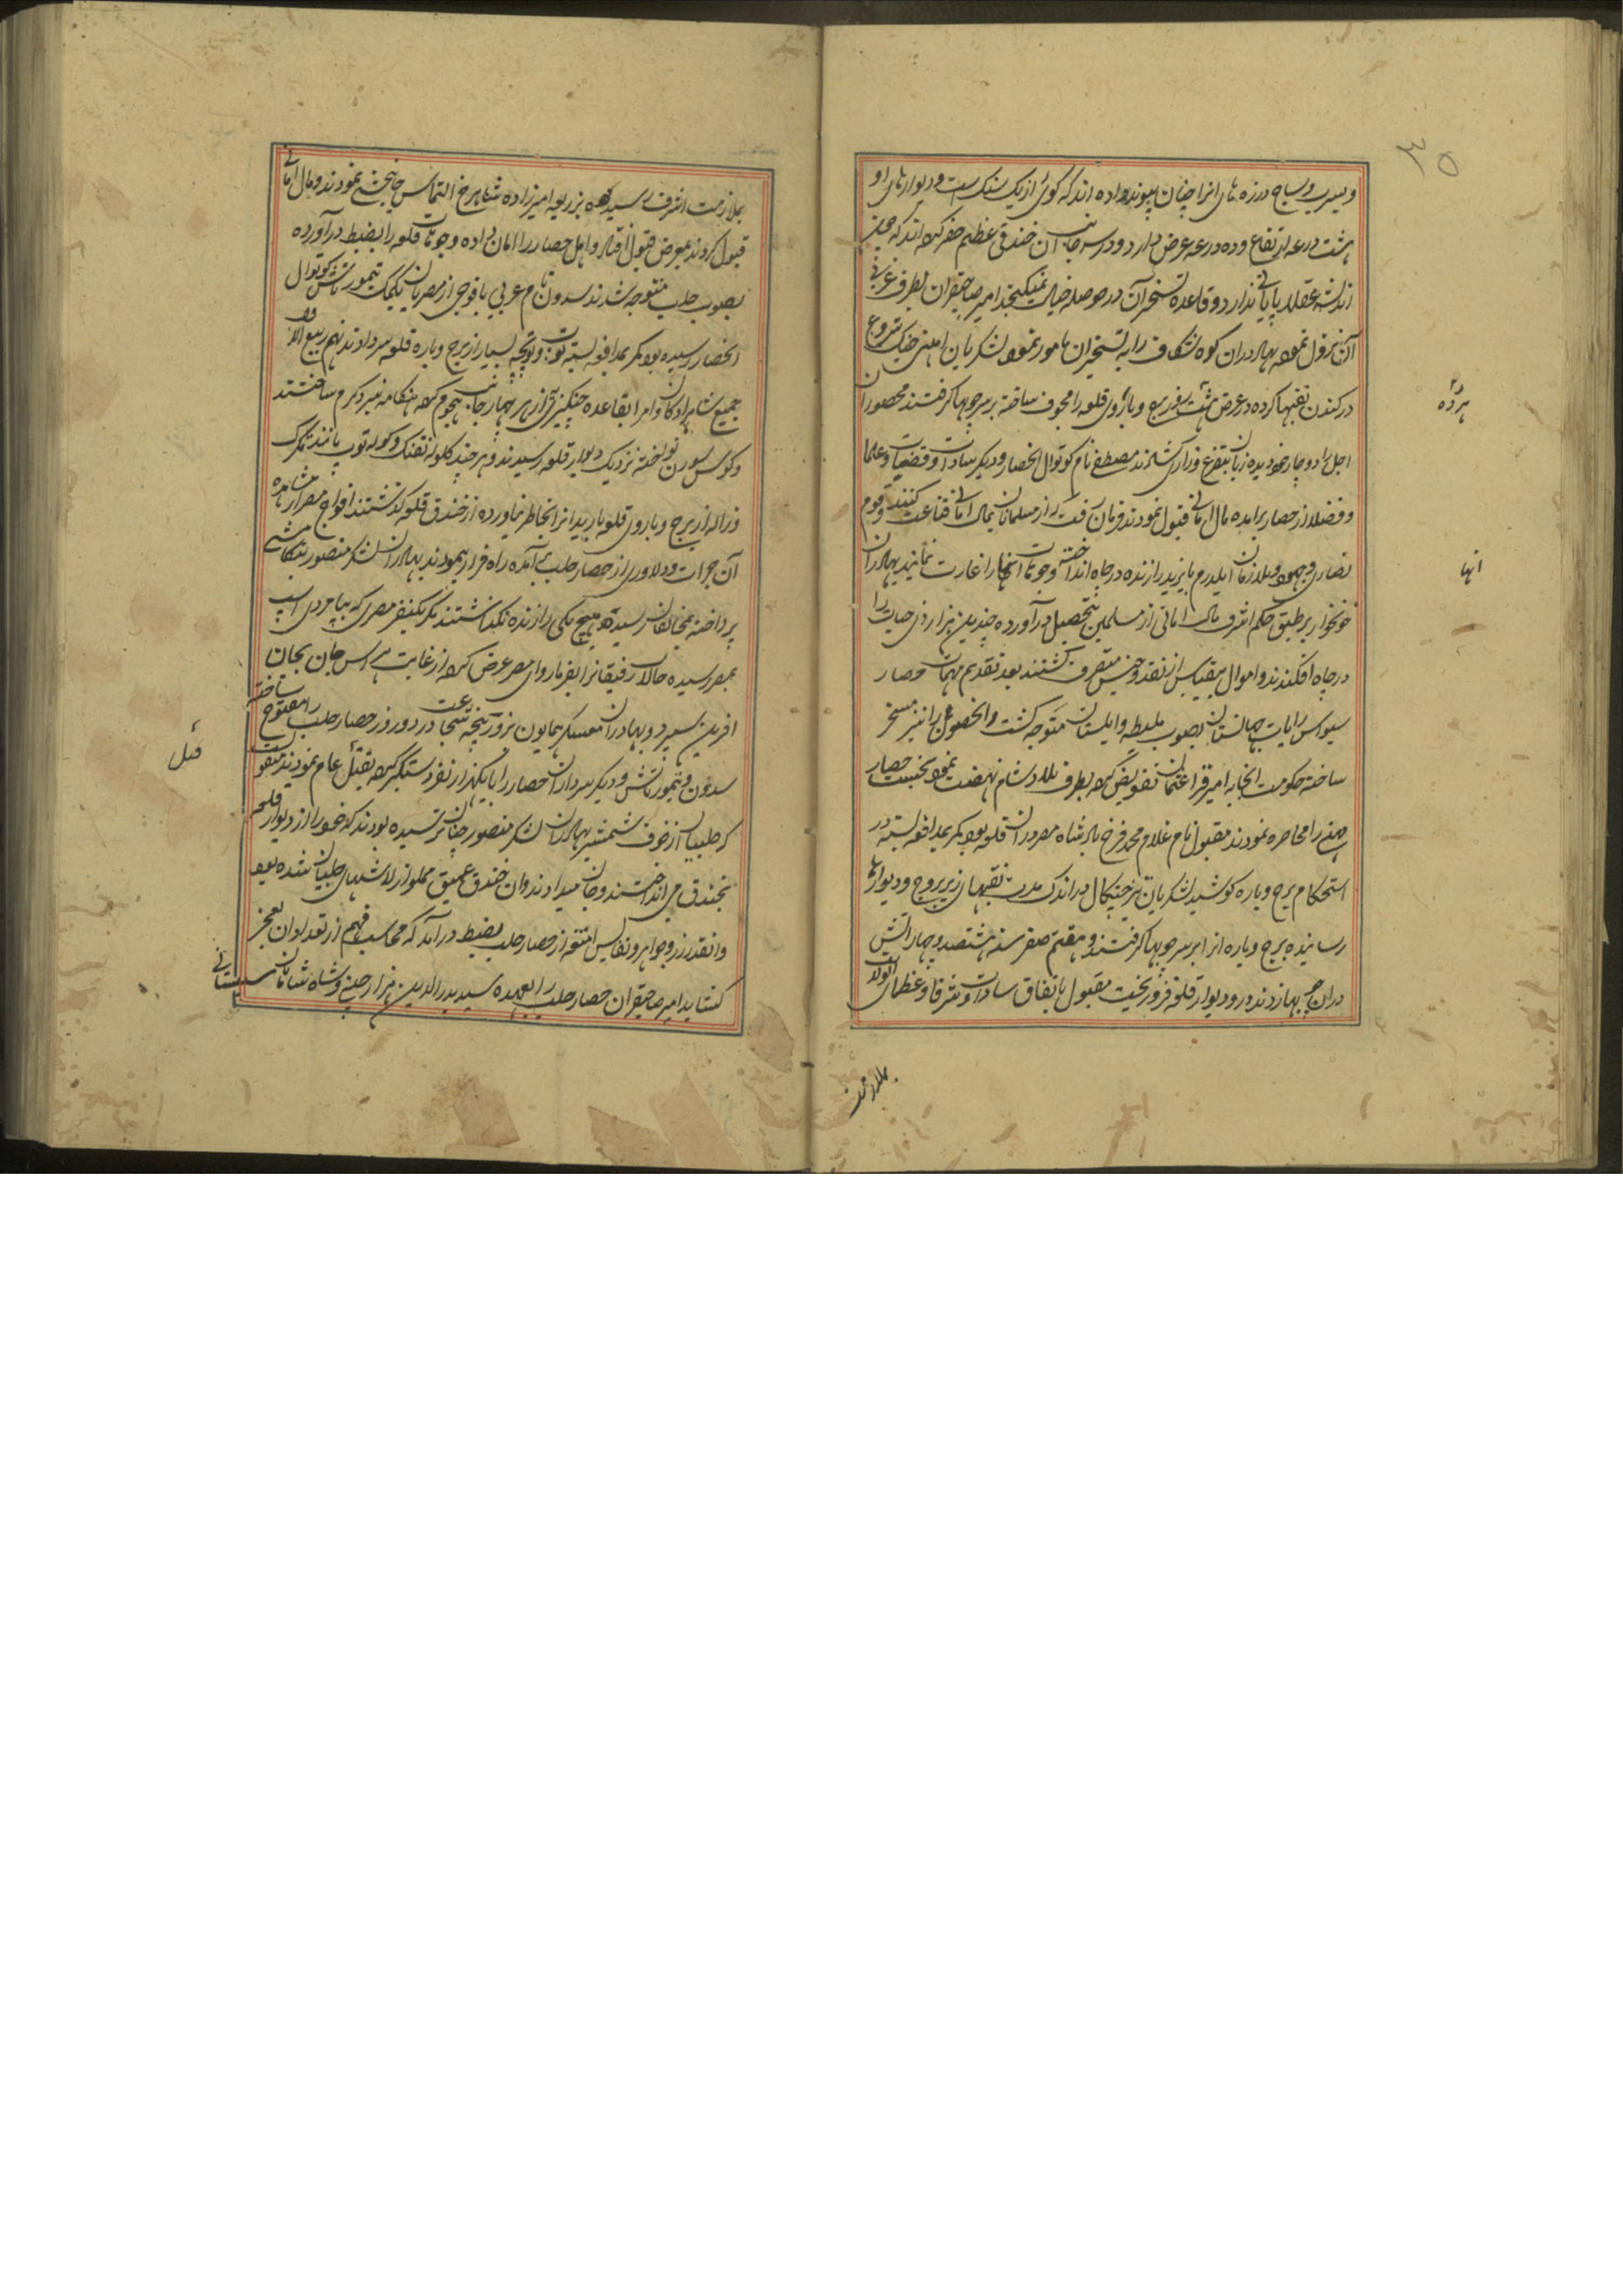 ۳۵
و سرب و ساج درزه های انرا چنان پیوند داده اند که گوئی از یک سنک است و دیوارهای او
هشت درعه ارتفاع و ده درعه عرض دارد و در سه جانب آن خندقی عظیم حفر کرده اند که
اندیشه عقلا پایانی ندارد و قاعده تسخیر آن در حوصله خیال نمیکنجد امیر صاحبقران بطرف غربی
آن نزول نموده بهادران کوه شکاف را به تسخیر ان مامور نموده لشکریان
در کندن نقبها کرده در عرض هشت روز برج و باروی قلعه را مجوف ساخته بر سر چوبها گرفتند محصوران
اجل را دوچار خود دیده زبان بتضرع و زاری مصطفی نام کوتوال انحصار و دیکر سادات و قضات و علما
و فضلا از حصار برامده مال امانی قبول نمودند فرمان رفت که از مسلمانان بمال امانی قناعت کنند و قوم
نصاری و یهود و ملازمان ایلدرم بایزید را زنده در چاه انداخته وجوهات انها را غارت نمایند بهادران
خونخوار بر طبق حکم اشرف مال امانی از مسلمین بتحصیل در آورده چندین هزار ذی حیات را
در چاه افکندند و اموال بیقیاس از نقد و جنس متصرف گشتند بعد تقدیم مهمات حصار
سیواس رایات جهانستان بصوب ملیطه و ابلستان متوجه کشت و انحضوع را نیز مسخر
ساخته حکومت انجا به امیر قرا عثمان تفویض کرده بطرف بلاد شام نهضت نمود نخست حصار
را محاصره نمودند مقبول نام غلام محمد فرخ پادشاه مصر دران قلعه بود کمر بمدافعه بسته در
استحکام برج و باره کوشید لشکریان تیز چنکال در اندک مدت نقبهای زیر بروج و دیوارها
رسانیده برج و باره انرا بر سر چوبها گرفتند و هفتم صفر سنه هشتصد و چهار اتش
دران چوبها زدند و دیوار قلعه فرو ریخت مقبول باتفاق سادات و شرفا و عظمای
هر ده
انها
بملازمت
بملازمت اشرف رسیده بذریعه امیرزاده شاهرخ التماس جانبخشی نمودند و مال امانی
قبول کردند بمعرض قبول افتاد و اهل حصار را امان داده وجوهات قلعه را بضبط در آورده
بصوب حلب متوجه شدند سدون نام عربی با فوجی از مصریان بکمک تیمورتاش کوتوال
انحصار رسیده بود کمر بمدافعه بسته توپ و توپچه بسیار از برج و باره قلعه سر دادند نهم ربیع الاول
جمیع شاهزادکان و امرا بقاعده چنکیزی از هر چهار جانب هجوم کرده هنکامه نبرد گرم ساختند
و کوس و سورن نواخته نزدیک دیوار قلعه رسیدند و هر چند کلوله تفنک و کوله توپ مانند تکرک
و ژاله از برج و باروی قلعه بارید انرا بخاطر نیاورده از خندق قلعه کذشتند افواج مصر از مشاهده
آن جرات و دلاوری از حصار حلب بر آمده راه فرار پیمودند بهادران لشکر منصور بتکامشی
پرداخته بمخالفان رسیده هیچ یکی را زنده نکذاشتند مکر یکنفر مصری که بپامردی اسب
بمصر رسیده حالات رفیقانرا بفرماروای مصر عرض کرده از غایت هراس جان بجان
افرین سپرد و بهادران معسکر همایون بزور پنجه شجاعت در دو روز حصار حلب را مفتوح ساخته
سدون و تیمورتاش و دیکر سرداران حصار را با یکهزار نفر دستگیر کرده بقتل عام نمودند منقولست
که حلبیان از خوف شمشیر بهادران لشکر منصور چنان ترسیده بودند که خود را از دیوار قلعه
بخندق می انداختند و جان میدادند و ان خندق عمیق مملو از لاشهای حلبیان شده بود
و انقدر زر و جواهر و نفایس امتعه از حصار حلب بضبط در آمد که محاسب فهم از تعداد ان بعجز
کشاید امیر صاحبقران حصار حلب را بعهده سید بدرالدین هزار و شاه شاهان سیستانی
قتل